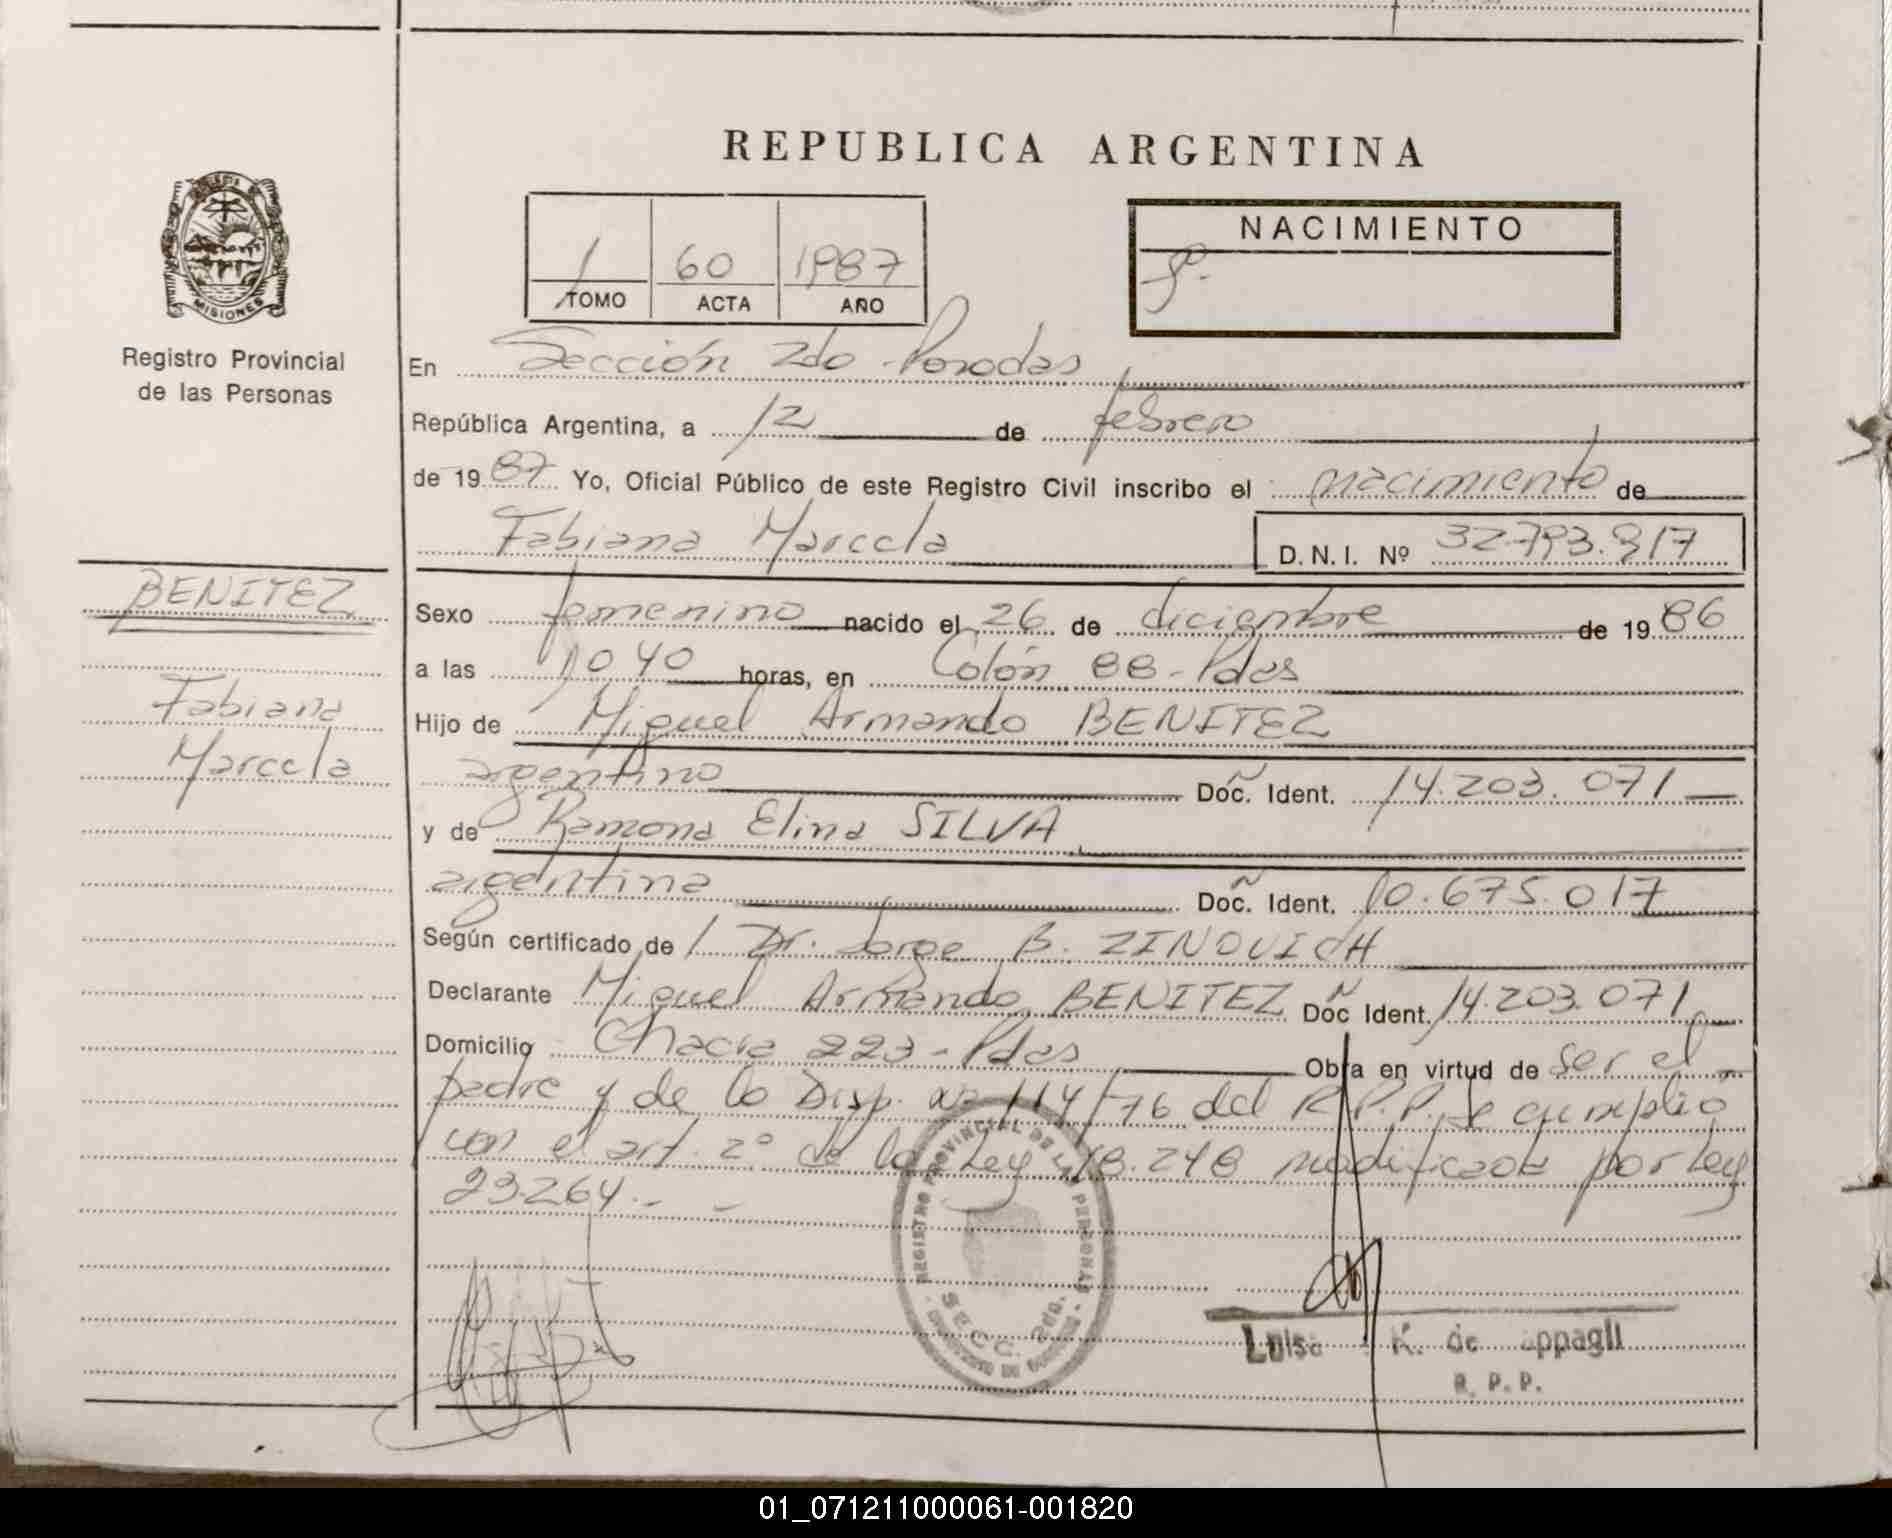 REPUBLICA ARGENTINA
1 60 1987
TOMO ACTA AÑO
NACIMIENTO
MISIONES
Registro Provincial
de las Personas
En Sección 2do Posadas
República Argentina, a 12 de febrero
de 1987 Yo, Oficial Público de este Registro Civil inscribo el nacimiento de
Fabiana Marcela D.N.I. Nº 32.793.917
BENITEZ
Fabiana
Marcela
Sexo femenino nacido el 26 de diciembre de 1986
a las 1040 horas, en Colón 88 - Pdas
Hijo de Miguel Armando BENITEZ
argentino Doc. Ident. 14.203.071
y de Ramona Elina SILVA
argentina Doc. Ident. 10.675.017
Según certificado de Dr. Jorge B. ZINOVICH
Declarante Miguel Armando BENITEZ Doc Ident. 14.203.071
Domicilio Chacra 223 - Pdas Obra en virtud de ser el
padre y de la Disp. nº 114/76 del R.P.P. Se cumplió
con el art. 2º de la Ley 18.248 modificada por Ley
23.264.-
REGISTRO PROVINCIAL DE LAS PERSONAS
SECC. 2da.
Luisa K. de
R. P. P.
01_071211000061-001820